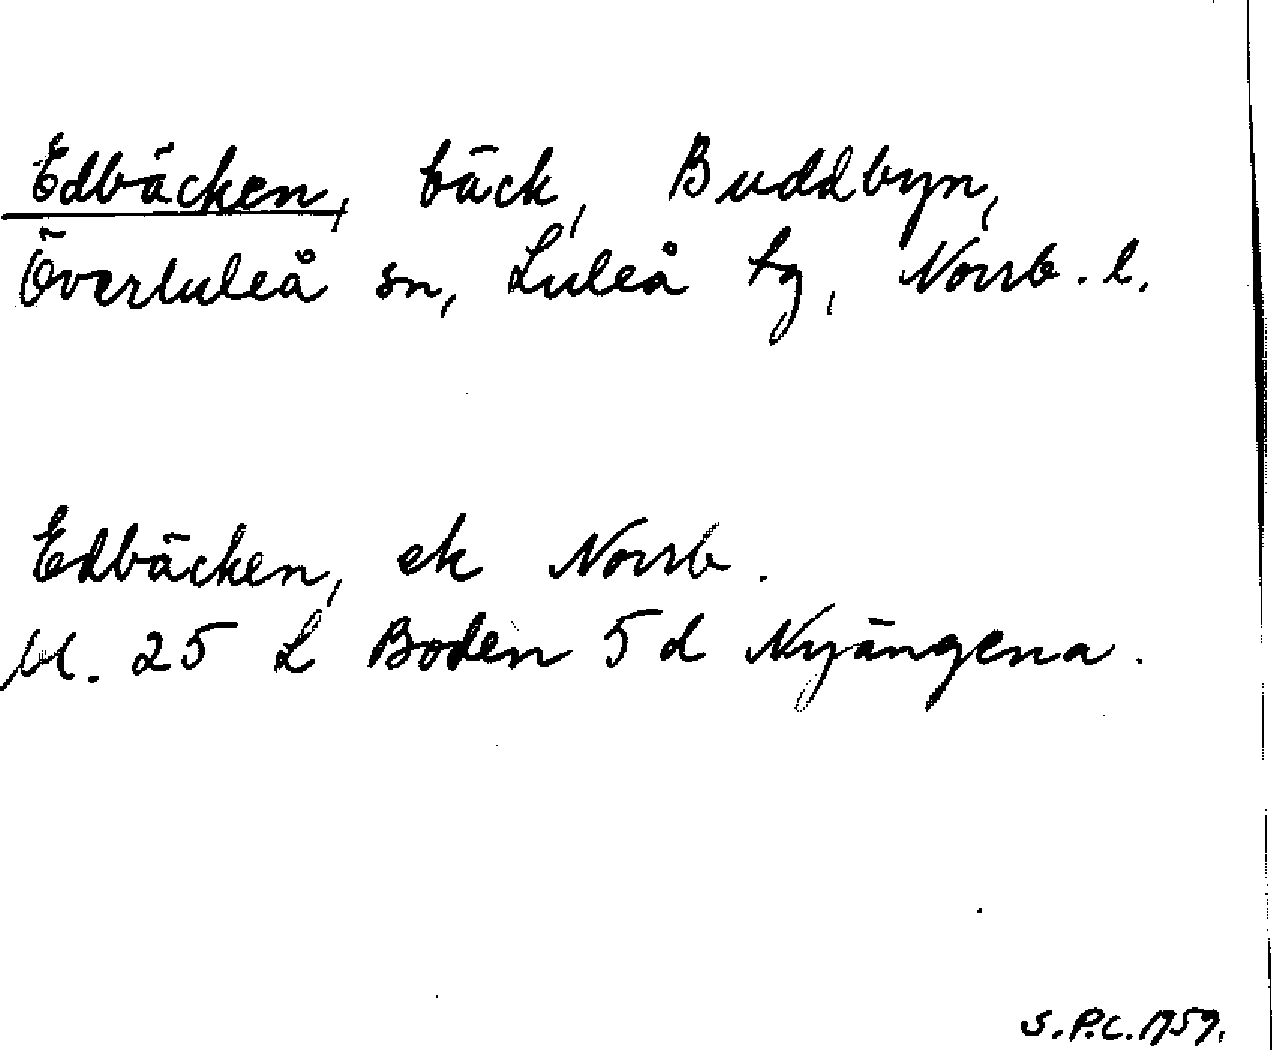 Edbäcken, bäck, Buddbyn,
Överluleå sn, Luleå tg, Norrb. l.
Edbäcken, ek Norrb.
Bl. 25 L Boden 5d Nyängena.
S.P.C. 1959.